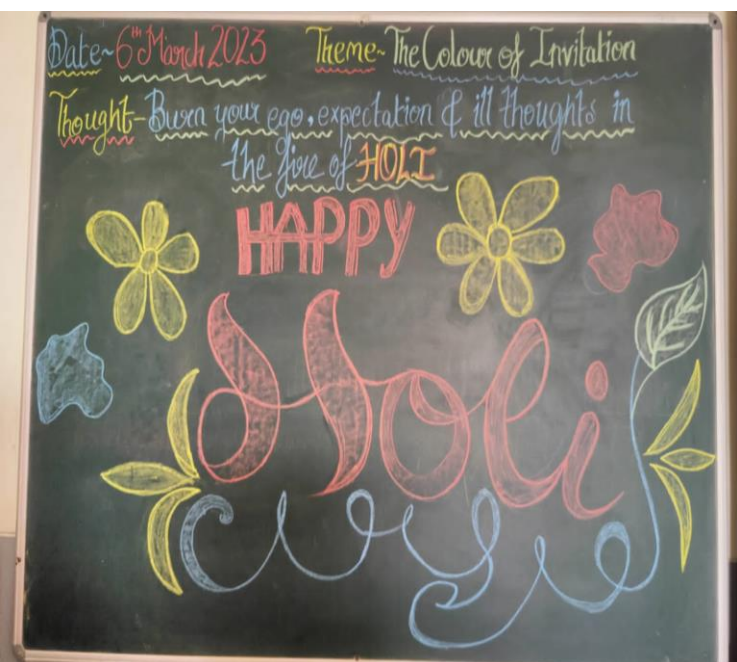 Date~ 6th March 2023 Theme~ The Colour of Invitation
Thought- Burn your ego, expectation & ill thoughts in
the fire of HOLI
HAPPY
Holi